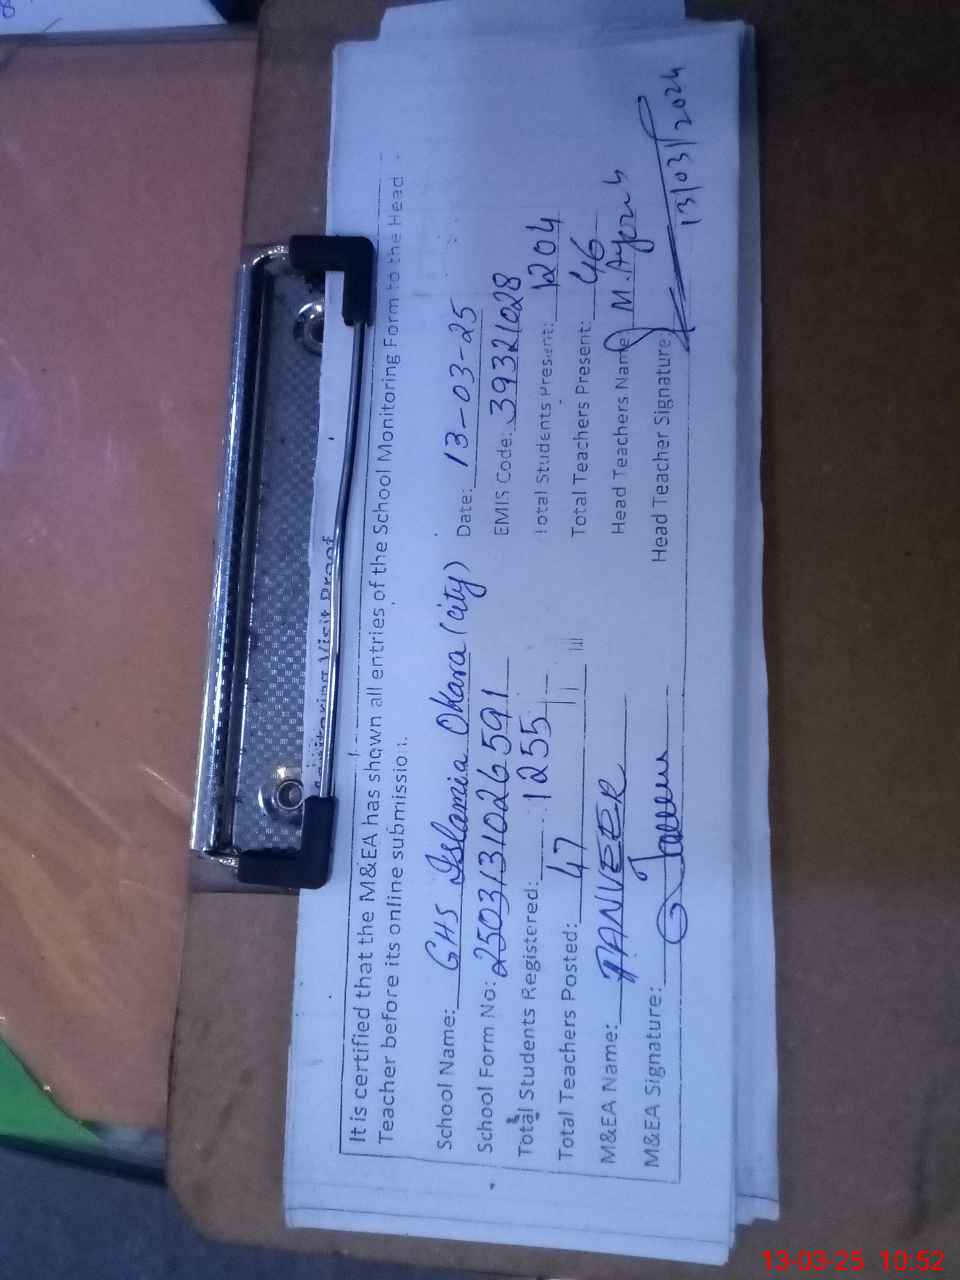 Monitoring Visit Proof
It is certified that the M&EA has shown all entries of the School Monitoring Form to the Head
Teacher before its online submission.
School Name: GHS Islamia Okara (city) Date: 13-03-25
School Form No: 2503131026591 EMIS Code: 39321028
Total Students Registered: 1255 Total Students Present: 1204
Total Teachers Posted: 47 Total Teachers Present: 46
M&EA Name: TANVEER Head Teachers Name M. Ayoub
M&EA Signature: Head Teacher Signature:
13/03/2024
13-03-25 10:52